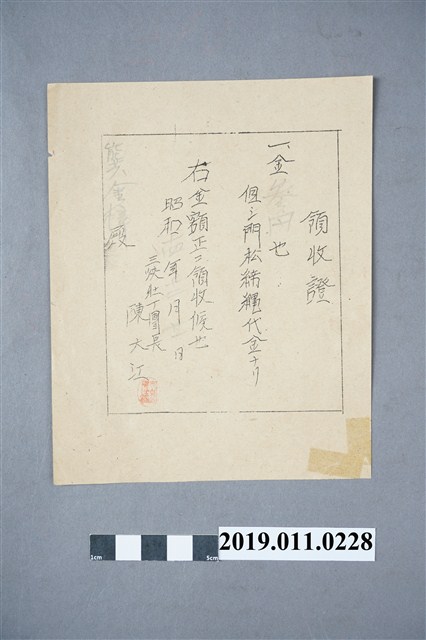 領收證
一金參円也
但シ門松締繩代金ナリ
右金額正ニ領收候也
昭和 年 月 日
三峽壯丁團長
陳大江
金 殿
1cm 5cm
2019.011.0228